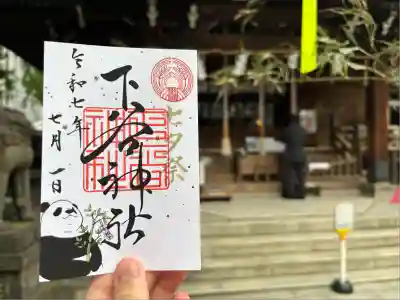 下谷神社
七夕祭
令和七年
七月一日